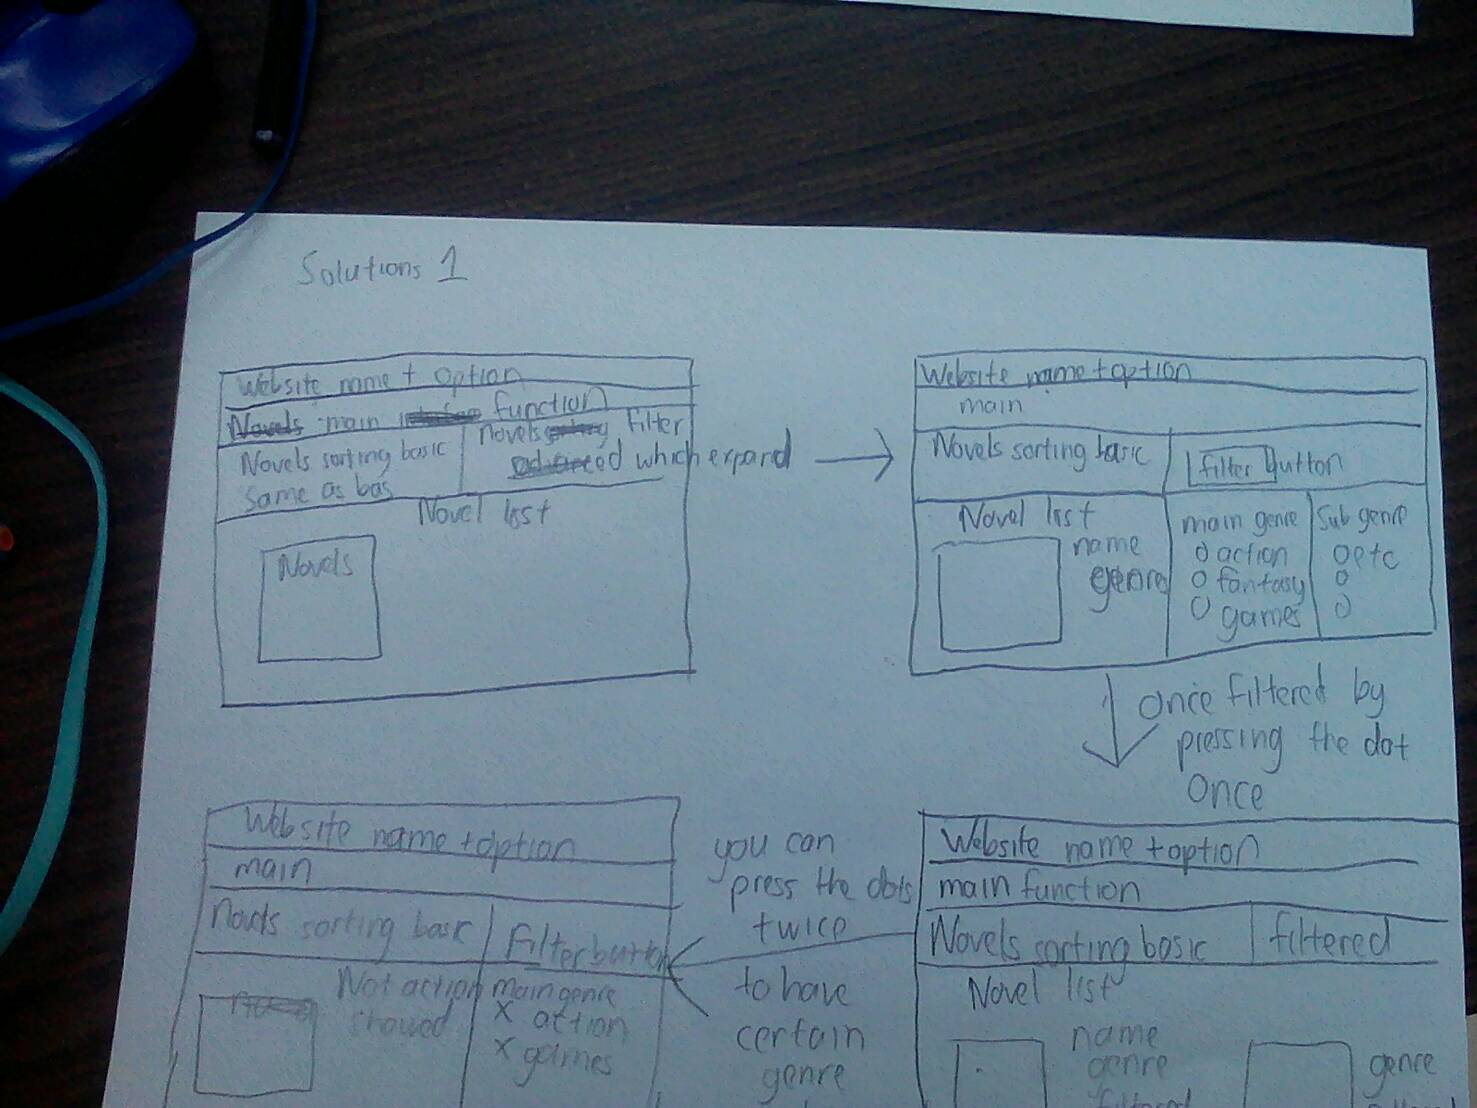 Solutions 1
Website name + option
Novels main function
Novels sorting basic
same as bas
Novels filter
which expand
Novel list
Novels
Website name + option
main
Novels sorting basic
filter button
Novel list
name
genre
main genre
action
fantasy
games
Sub genre
etc
once filtered by
pressing the dot
once
Website name + option
main function
Novels sorting basic
filtered
Novel list
name
genre
filtered
genre
you can
press the dots
twice
to have
certain
genre
Website name + option
main
Novels sorting basic
Filter button
Not action
showed
main genre
x action
x games